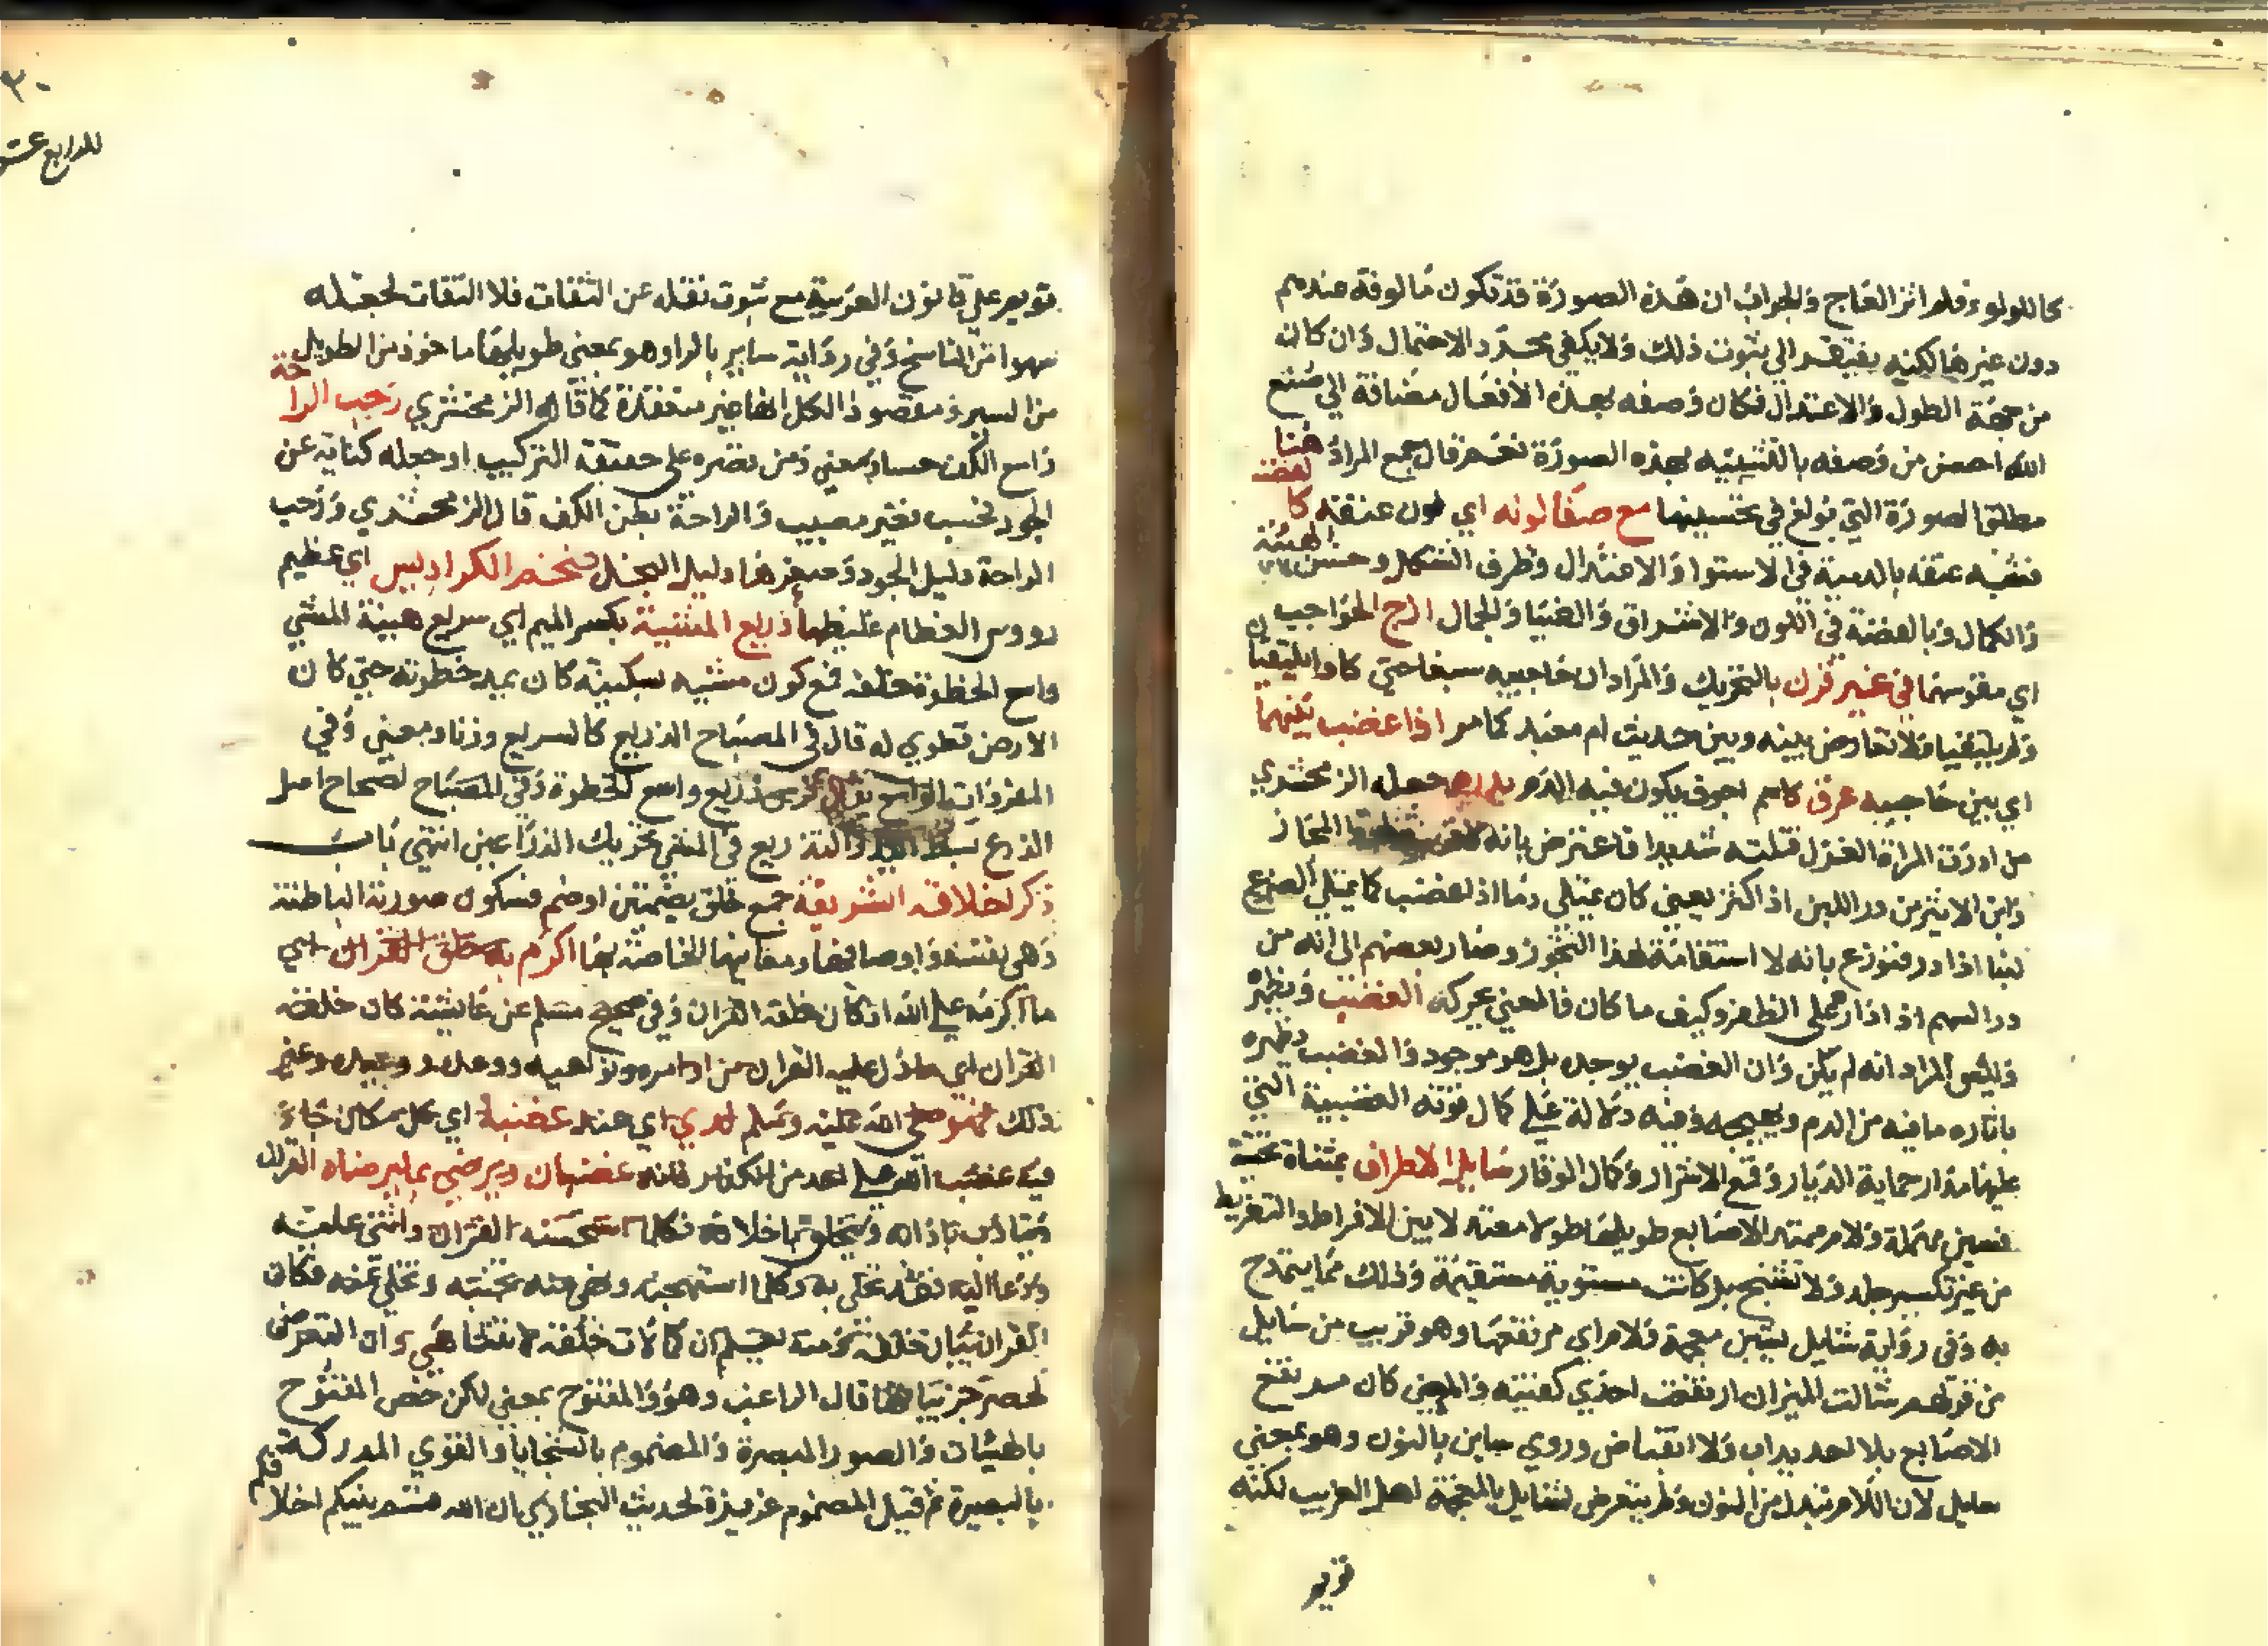 كاللولو فلم اثر العاج والجواب ان هذه الصورة قد تكون مالوفة عندهم
دون غيرها لكنه يفتقر الي ثبوت ذلك ولا يكفي مجرد الاحتمال وان كان
من جهة الطول والاعتدال فكان وصفه بهذه الافعال مضافة الي صنع
الله احسن من وصفه بالتشبيه بهذه الصورة نعم قال جمع المراد هنا
مطلق الصورة التي بولغ في تحسينها مع صفا لونه اي لون عنقه كا لفضة
فشبه عنقه بالدمية في الاستوا والاعتدال وظرف الشكل وحسن الهيئة
والكمال وبالفضة في اللون والاشراق والضيا والجمال ازج الحواجب
اي مقوسهما في غير قرن بالتحريك والمراد ان حاجبيه سبغا حتي كادا يلتقيا ن
ولم يلتقيا ولا تعارض بينه وبين حديث ام معبد كما مر اذا غضب بينهما
اي بين حاجبيه عرق كاسم اجوف يكون فيه الدم يدره جعله الزمخشري
من ادرت المراة الغزل فتلته شديدا فاعترض بانه المجاز
وابن الاثير من در اللبن اذا كثر يعني كان يمتلي دما اذا غضب كما يمتلي الضرع
لبنا اذا در فنوزع بانه لا استقامة لهذا التجوز وصار بعضهم الي انه من
در السهم اذا دار علي الظفر وكيف ما كان فالمعني يحركه الغضب ويظهر
وليس المراد انه لم يكن وان الغضب يوجده بل هو موجود والغضب يظهره
باثاره ما فيه من الدم ويهيجه وفيه دلالة علي كمال قوته الغضبية التي
عليها مدار حماية الديار وقمع الاشرار وكمال الوقار سايل الاطراف بمثناة تحتية
فسين مهملة ولام ممتد الاصابع طويلها طولا معتدلا بين الافراط والتفريط
من غير تكسير جلد ولا تشنج بل كانت مستوية مستقيمة وذلك مما يتمدح
به وفي رواية شايل بشين معجمة ولام اي مرتفعها وهو قريب من سايل
من قولهم شالت الميزان ارتفعت احدي كفتيه والمعني كان مرتفع
الاصابع بلا احديداب ولا انقباض وروي ساين بالنون وهو بمعني
سايل لان اللام تبدل من النون ولم يتعرض لشايل بالمعجمة اهل الغريب لكنه
توير
٣٠
الرابع عشر
توير علي قانون العربية مع ثبوت نقله عن الثقات فلا التفات لجعله
سهوا من الناسخ وفي رواية ساير بالرا وهو بمعني طويلها ماخوذ من الطويل
من السير ومقصود الكل انها غير متعقدة كما قاله الزمخشري رحب الرا حة
واسع الكف حسا ومعني ومن قصره علي حقيقة التركيب او جعله كناية عن
الجود فحسب فغير مصيب والراحة بطن الكف قال الزمخشري ورحب
الراحة دليل الجود وصغرها دليل البخل ضخم الكراديس اي عظيم
رووس العظام غليظها ذريع المشية بكسر الميم اي سريع هيئة المشي
واسع الخطوة خلقة فمع كون مشيه بسكينة كان يمد خطوته حتي كان
الارض تطوي له قال في المصباح الذريع كالسريع وزنا ومعني وفي
المفردات الواسع يقال فرس ذريع واسع الخطوة وفي المصباح لصحاح اصل
الذرع بسط اليد والتذريع في المشي تحريك الذراعين انتهي باب
ذكر اخلاقه الشريفة جمع خلق بضمتين او ضم فسكون صورته الباطنة
وهي نفسه واوصافها ومعانيها الخاصة بها اكرم به خلق القران اي
ما اكرمه علي الله اذ كان خلقه القران وفي صحيح مسلم عن عائشة كان خلقه
القران اي ما دل عليه القران من اوامره ونواهيه ووعده ووعيده وغير
ذلك فهو صلي الله عليه وسلم لدي اي عند غضبه اي كل مكان جاء
فيه غضب الله علي احد من الكفار فانه غضبان ويرضي بما يرضاه القران
يتادب بادابه ويتخلق باخلاقه فكلما استحسنه القران واثني عليه
ودعا اليه فقد تحلي به وكلما استهجنه ونهي عنه تجنبه وتخلي عنه فكان
القران بيان خلقه ومنه يعلم ان كمالات خلقه لا تتناهي وان التعرض
لحصر جزئياتها قال الراغب وهو والمفتوح بمعني لكن خص المفتوح
بالهيئات والصور المبصرة والمضموم بالسجايا والقوي المدركة
بالبصيرة ثم قيل المضموم غريزة لحديث البخاري ان الله قسم بينكم اخلا قكم